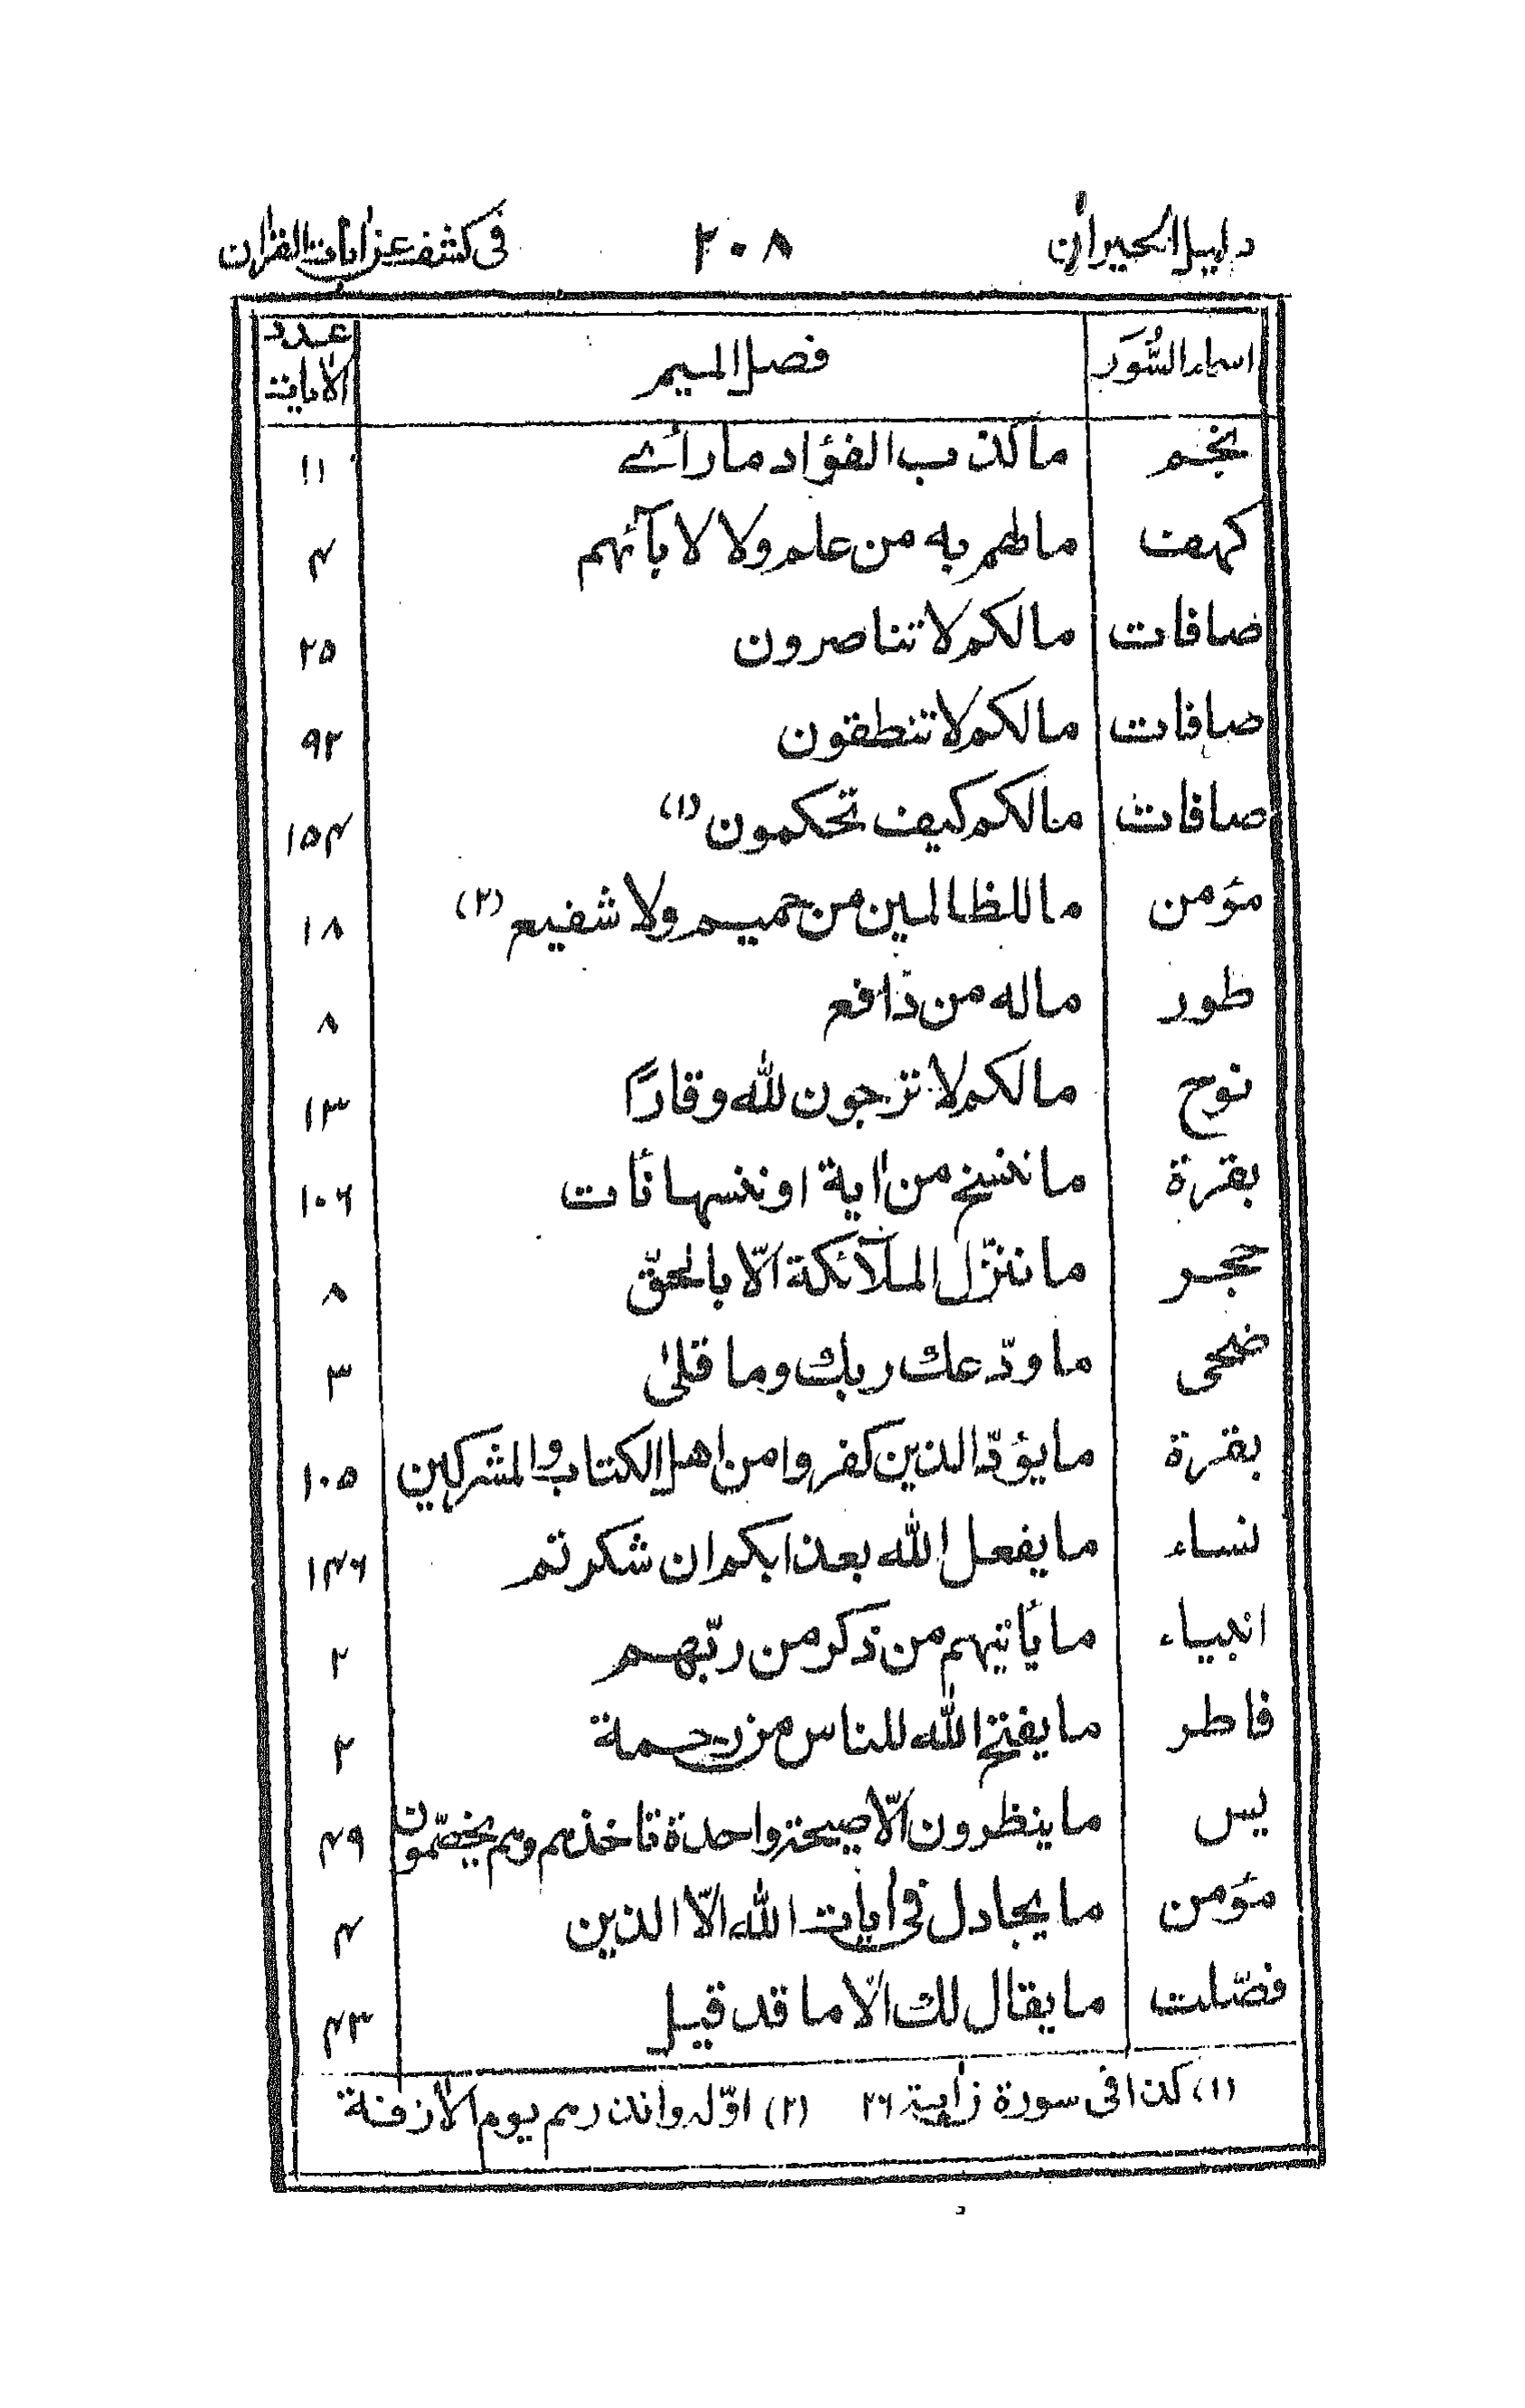 دليل الحيران ٢٠٨ فى كشف عن اٰيات القراٰن
اسماء السُّوَر فصل الميم عدد الاٰيات
نجم ما كذب الفؤاد ما راٰے ١١
كهف ما لهم به من علم ولا لاٰبآئهم ۴
صافات ما لكم لا تناصرون ٢۵
صافات ما لكم لا تنطقون ٩٢
صافات ما لكم كيف تحكمون (١) ١۵۴
مؤمن ما للظالمين من حميم ولا شفيع (٢) ١٨
طور ما له من دافع ٨
نوح ما لكم لا ترجون لله وقارًا ١٣
بقرة ما ننسخ من اٰية او ننسها نأت ١٠۶
حجر ما ننزّل الملآئكة الّا بالحقّ ٨
ضحى ما ودّعك ربك وما قلىٰ ٣
بقرة ما يودّ الذين كفروا من اهل الكتاب والمشركين ١٠۵
نساء ما يفعل الله بعذابكم ان شكرتم ١۴۶
انبياء ما يأتيهم من ذكر من ربّهم ٢
فاطر ما يفتح الله للناس من رحمة ٢
يٰس ما ينظرون الّا صيحة واحدة تاخذهم وهم يخصّمون ۴٩
مؤمن ما يجادل فى اٰيات الله الّا الذين ۴
فصّلت ما يقال لك الّا ما قد قيل ۴٣
(١) كذا فى سورة ن اٰية ٣۶ (٢) اوّله وانذرهم يوم الاٰزفة